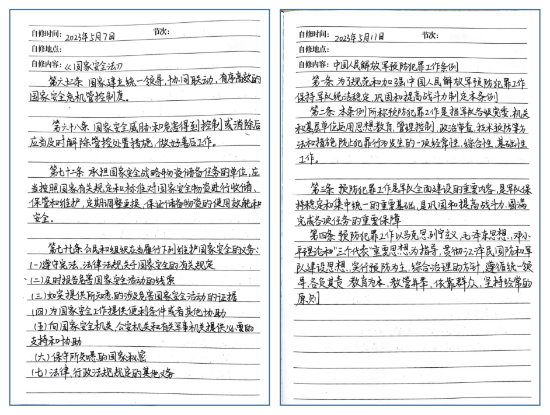 自修时间: 2023年5月7日 节次:
自修地点:
自修内容: 《国家安全法》
第六十二条 国家建立统一领导,协同联动,有序高效的
国家安全危机管控制度。
第六十八条 国家安全威胁和危害得到控制或消除后
应当及时解除管控处置措施,做好善后工作。
第七十一条 承担国家安全战略物资储备任务的单位,应
当按照国家有关规定和标准对国家安全物资进行收储、
保管和维护,定期调整更换,保证储备物资的使用效能和
安全。
第七十七条 公民和组织应当履行下列维护国家安全的义务:
(一)遵守宪法、法律法规关于国家安全的有关规定
(二)及时报告危害国家安全活动的线索
(三)如实提供所知悉的涉及危害国家安全活动的证据
(四)为国家安全工作提供便利条件或者其他协助
(五)向国家安全机关、公安机关和有关军事机关提供必要的
支持和协助
(六)保守所知悉的国家秘密
(七)法律、行政法规规定的其他义务
自修时间: 2023年5月11日 节次:
自修地点:
自修内容: 中国人民解放军预防犯罪工作条例
第一条 为了规范和加强中国人民解放军预防犯罪工作
保持军队纯洁稳定,巩固和提高战斗力制定本条例
第二条 本条例所称预防犯罪工作是指军队各级党委,机关
和基层单位运用思想教育,管理控制,政治审查,技术预防等方
法和措施防止犯罪行为发生的一项经常性,综合性,基础性
工作。
第三条 预防犯罪工作是军队全面建设的重要内容,是军队保
持稳定和集中统一的重要基础,是巩固和提高战斗力,圆满
完成各项任务的重要保障
第四条 预防犯罪工作以马克思列宁主义,毛泽东思想,邓小
平理论和"三个代表"重要思想为指导,贯彻江泽民国防和军
队建设思想,实行预防为主,综合治理的方针,遵循统一领
导,各负其责,教育为本,教管并举,依靠群众,坚持经常的
原则